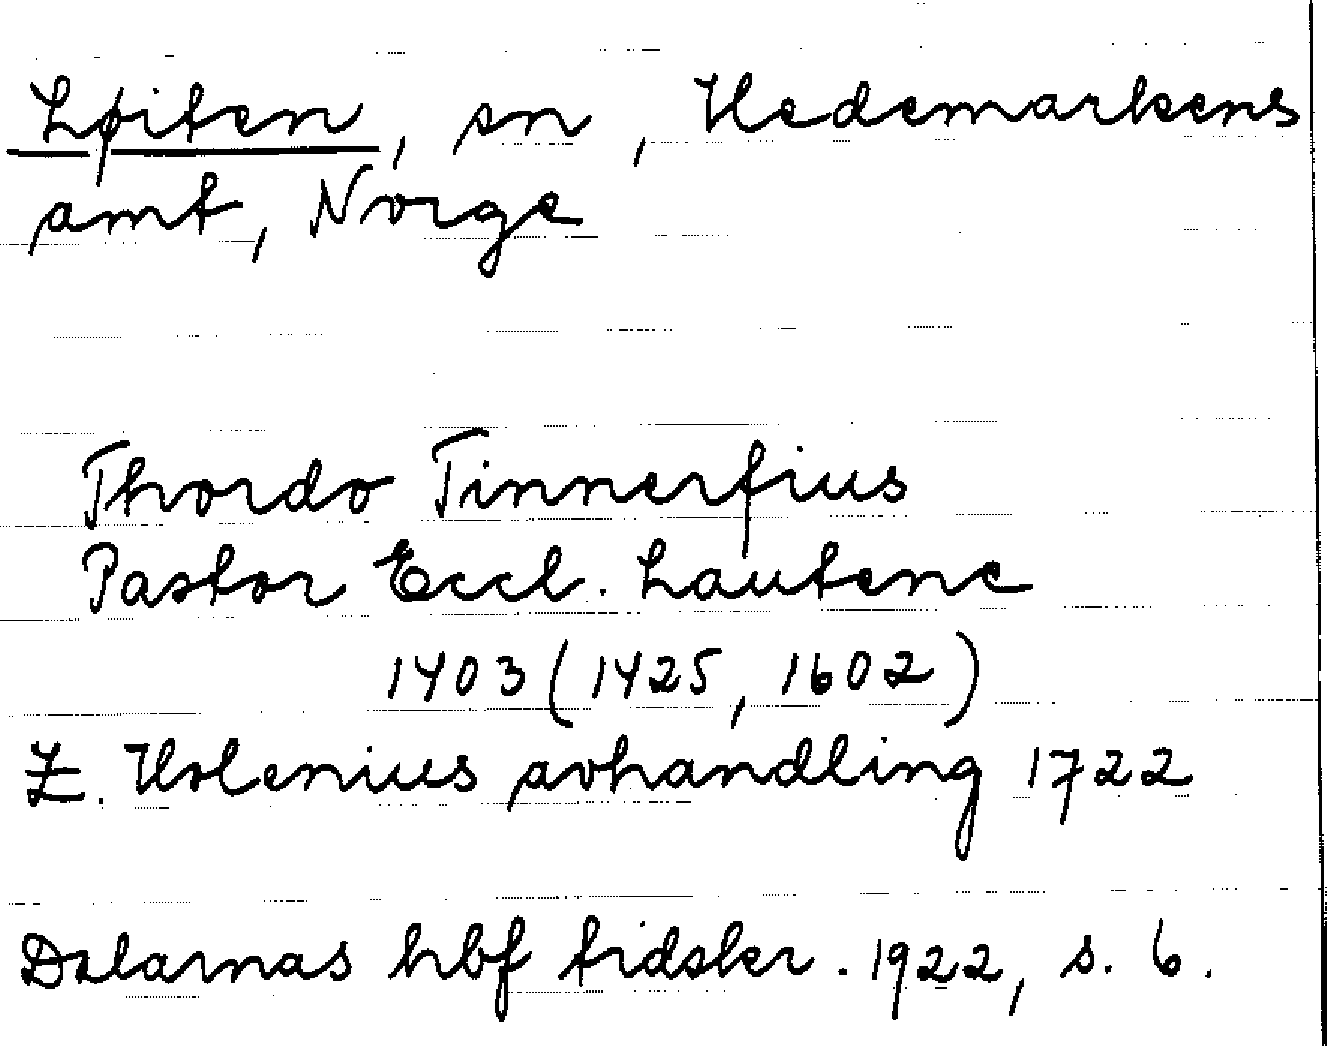 Løiten, sn, Hedemarkens
amt, Norge
Thordo Tinnerfius
Pastor Eccl. Lautene
1403 (1425, 1602)
Z. Holenius avhandling 1722
Dalarnas hbf tidskr. 1922, s. 6.